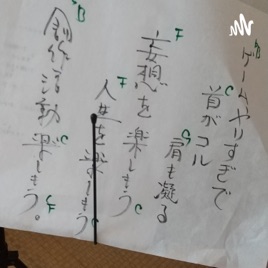 B
ゲームやりすぎで
C
首がコル
G
肩も凝る
F
妄想を楽しもう
C
F
人生を楽しもう
C
B
創作活動楽しもう。
C
F